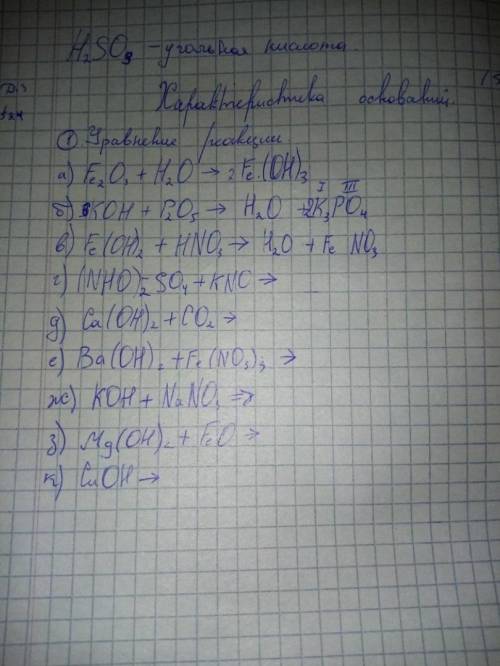 H₂SO₃ - угольная кислота.
Характеристика оснований.
① Уравнение реакции
а) Fe₂O₃ + H₂O → 2Fe(OH)₃
б) 8KOH + P₂O₅ → H₂O + 2K₃PO₄
I III
в) Fe(OH)₂ + HNO₃ → H₂O + Fe NO₃
г) (NHO)₂SO₄ + KNO →
д) Ca(OH)₂ + CO₂ →
е) Ba(OH)₂ + Fe(NO₃)₃ →
ж) KOH + NaNO₃ →
з) Mg(OH)₂ + FeO →
к) CuOH →